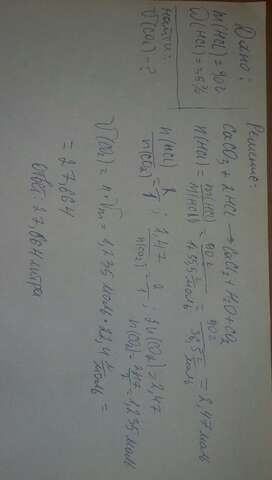 Дано:
m(HCl) = 90г
W(HCl) = 36%
Найти:
V(CO2) - ?
Решение:
CaCO3 + 2HCl → CaCl2 + H2O + CO2
n(HCl) = m(HCl) / M(HCl) = 90г / 1+35,5 г/моль = 90г / 36,5 г/моль = 2,47 моль
n(HCl) / n(CO2) = 2 / 1 ; 2,47 / n(CO2) = 2 / 1 ; 2n(CO2) = 2,47
n(CO2) = 2,47 / 2 = 1,235 моль
V(CO2) = n · Vm = 1,235 моль · 22,4 л/моль =
= 27,664
Ответ: 27,664 литра